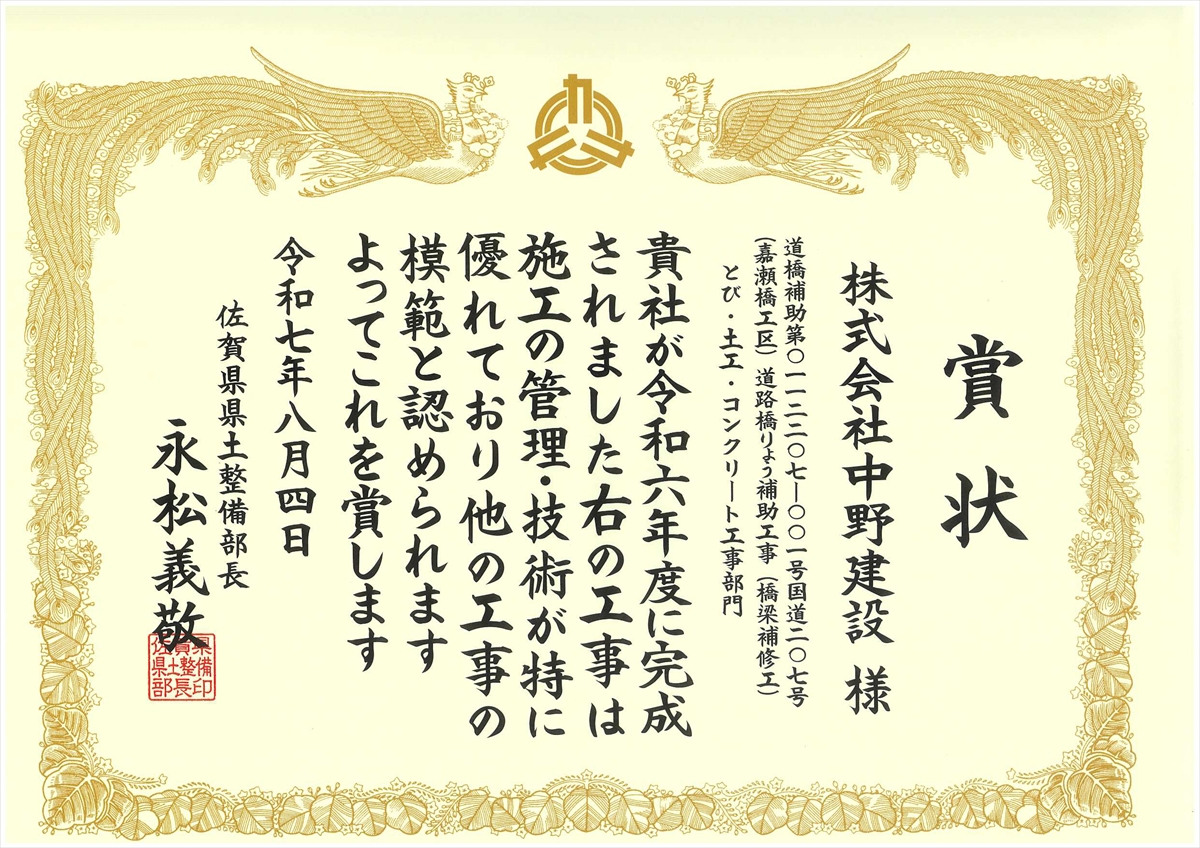 賞状
株式会社中野建設 様
道橋補助第〇一一二二〇七―〇〇一号国道二〇七号
(嘉瀬橋工区)道路橋りょう補助工事(橋梁補修工)
とび・土工・コンクリート工事部門
貴社が令和六年度に完成
されました右の工事は
施工の管理・技術が特に
優れており他の工事の
模範と認められます
よってこれを賞します
令和七年八月四日
佐賀県県土整備部長
永松義敬
佐賀県
県土整備
部長印